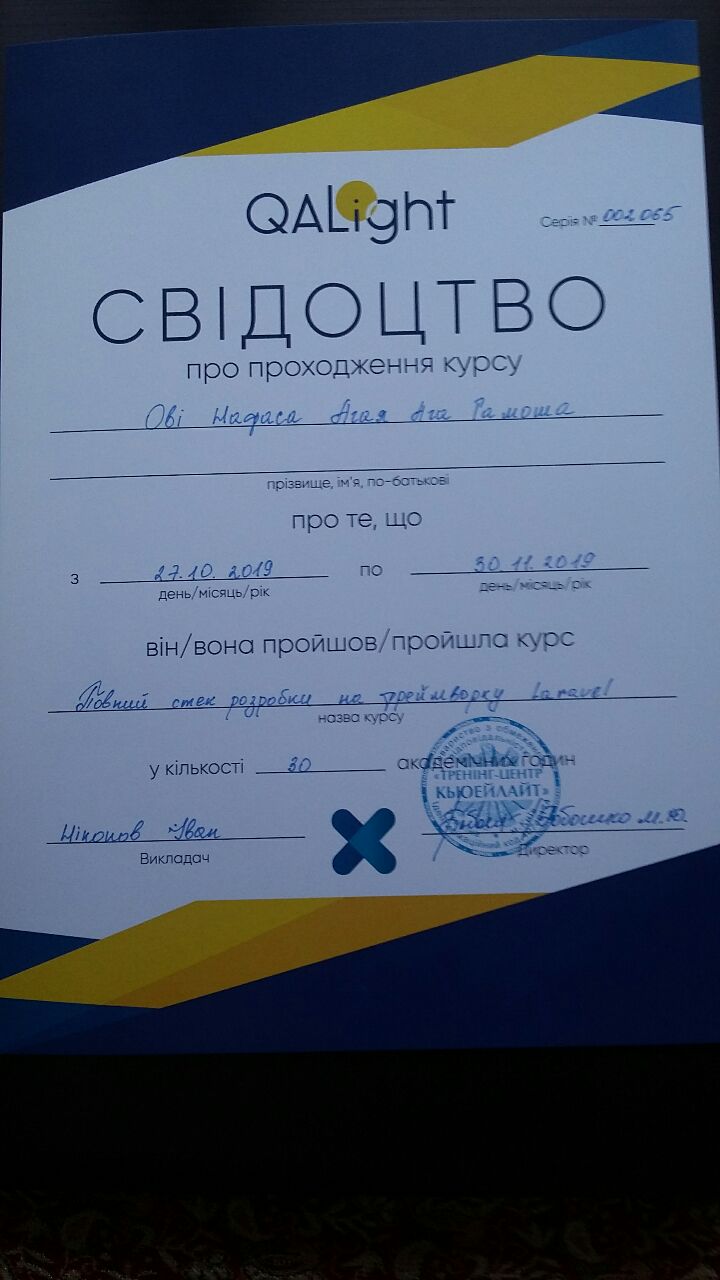 QALight
Серія № 002065
СВІДОЦТВО
про проходження курсу
Ові Нафаса Агая Ага Рамоша
прізвище, ім'я, по-батькові
про те, що
з 27.10.2019 по 30.11.2019
день/місяць/рік день/місяць/рік
він/вона пройшов/пройшла курс
Повний стек розробки на фреймворку Laravel
назва курсу
у кількості 30 академічних годин
«ТРЕНІНГ-ЦЕНТР
КЬЮЕЙЛАЙТ»
Ніконов Іван
Викладач Директор